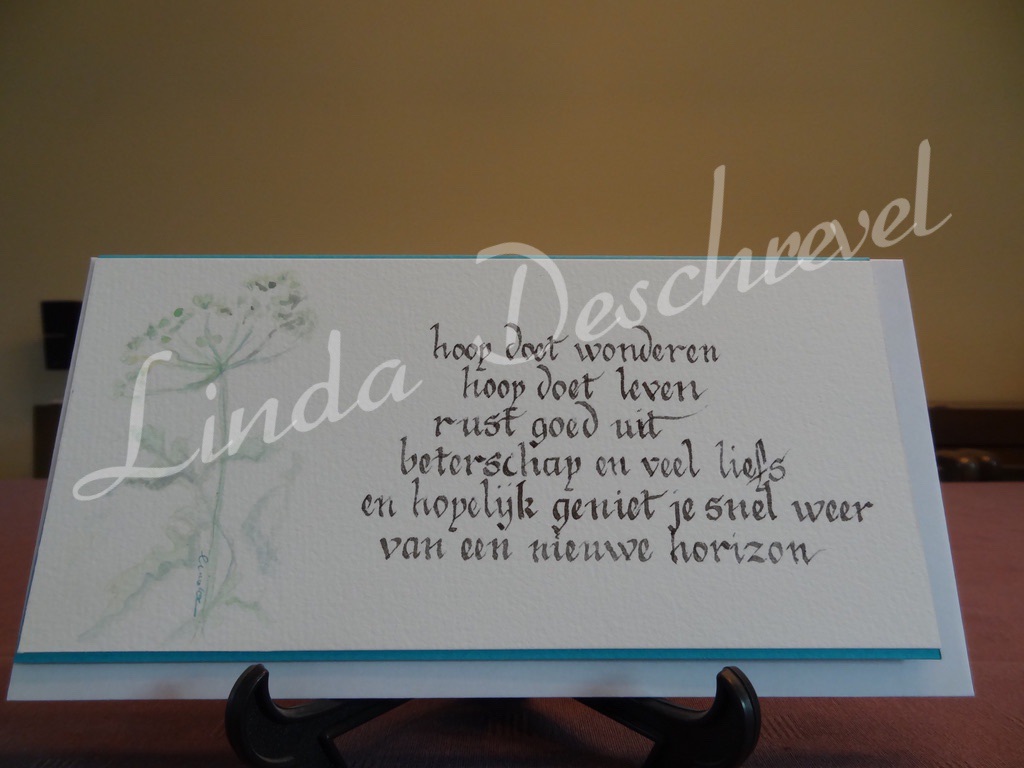 Linda Deschrevel
hoop doet wonderen
hoop doet leven
rust goed uit
beterschap en veel liefs
en hopelijk geniet je snel weer
van een nieuwe horizon